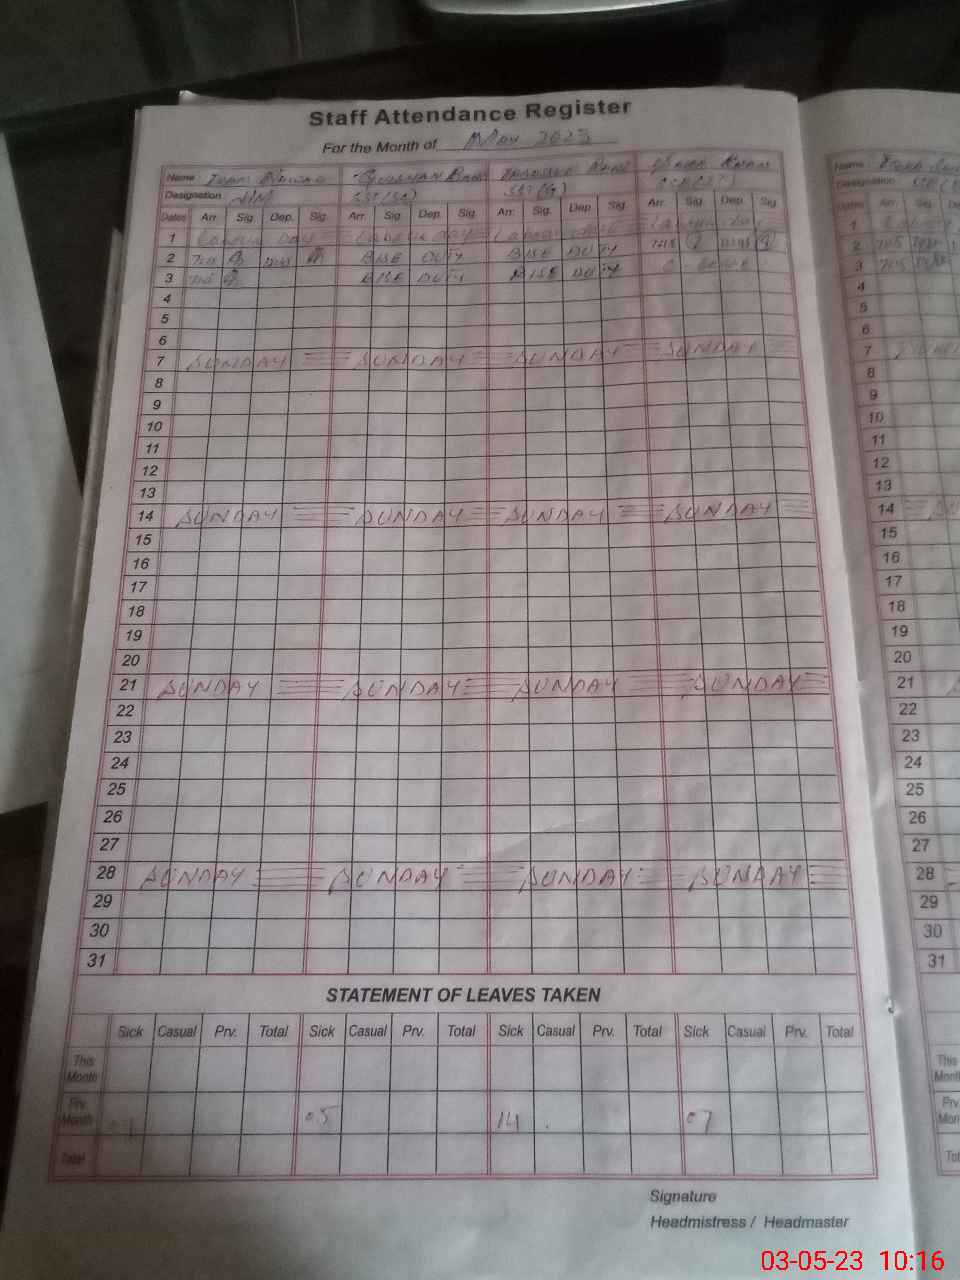 Staff Attendance Register
For the Month of May 2023
Name
Name
Designation SST(G)
Designation
Dates Arr. Sig. Dep. Sig. Arr. Sig. Dep. Sig. Arr. Sig. Dep. Sig. Arr. Sig. Dep. Sig.
Dates Arr. Sig.
1 Labour Day Labour day Labour day Labour day
1
2 BISE DUTY BISE DUTY
2 715
3 BISE DUTY BISE DUTY
3
4
4
5
5
6
6
7 SUNDAY SUNDAY SUNDAY SUNDAY
7
8
8
9
9
10
10
11
11
12
12
13
13
14 SUNDAY SUNDAY SUNDAY SUNDAY
14
15
15
16
16
17
17
18
18
19
19
20
20
21 SUNDAY SUNDAY SUNDAY SUNDAY
21
22
22
23
23
24
24
25
25
26
26
27
27
28 SUNDAY SUNDAY SUNDAY SUNDAY
28
29
29
30
30
31
31
STATEMENT OF LEAVES TAKEN
Sick Casual Prv. Total Sick Casual Prv. Total Sick Casual Prv. Total Sick Casual Prv. Total
This
Month
This
Month
Prv
Month 05 14 07
Prv
Total
Signature
Headmistress / Headmaster
03-05-23 10:16